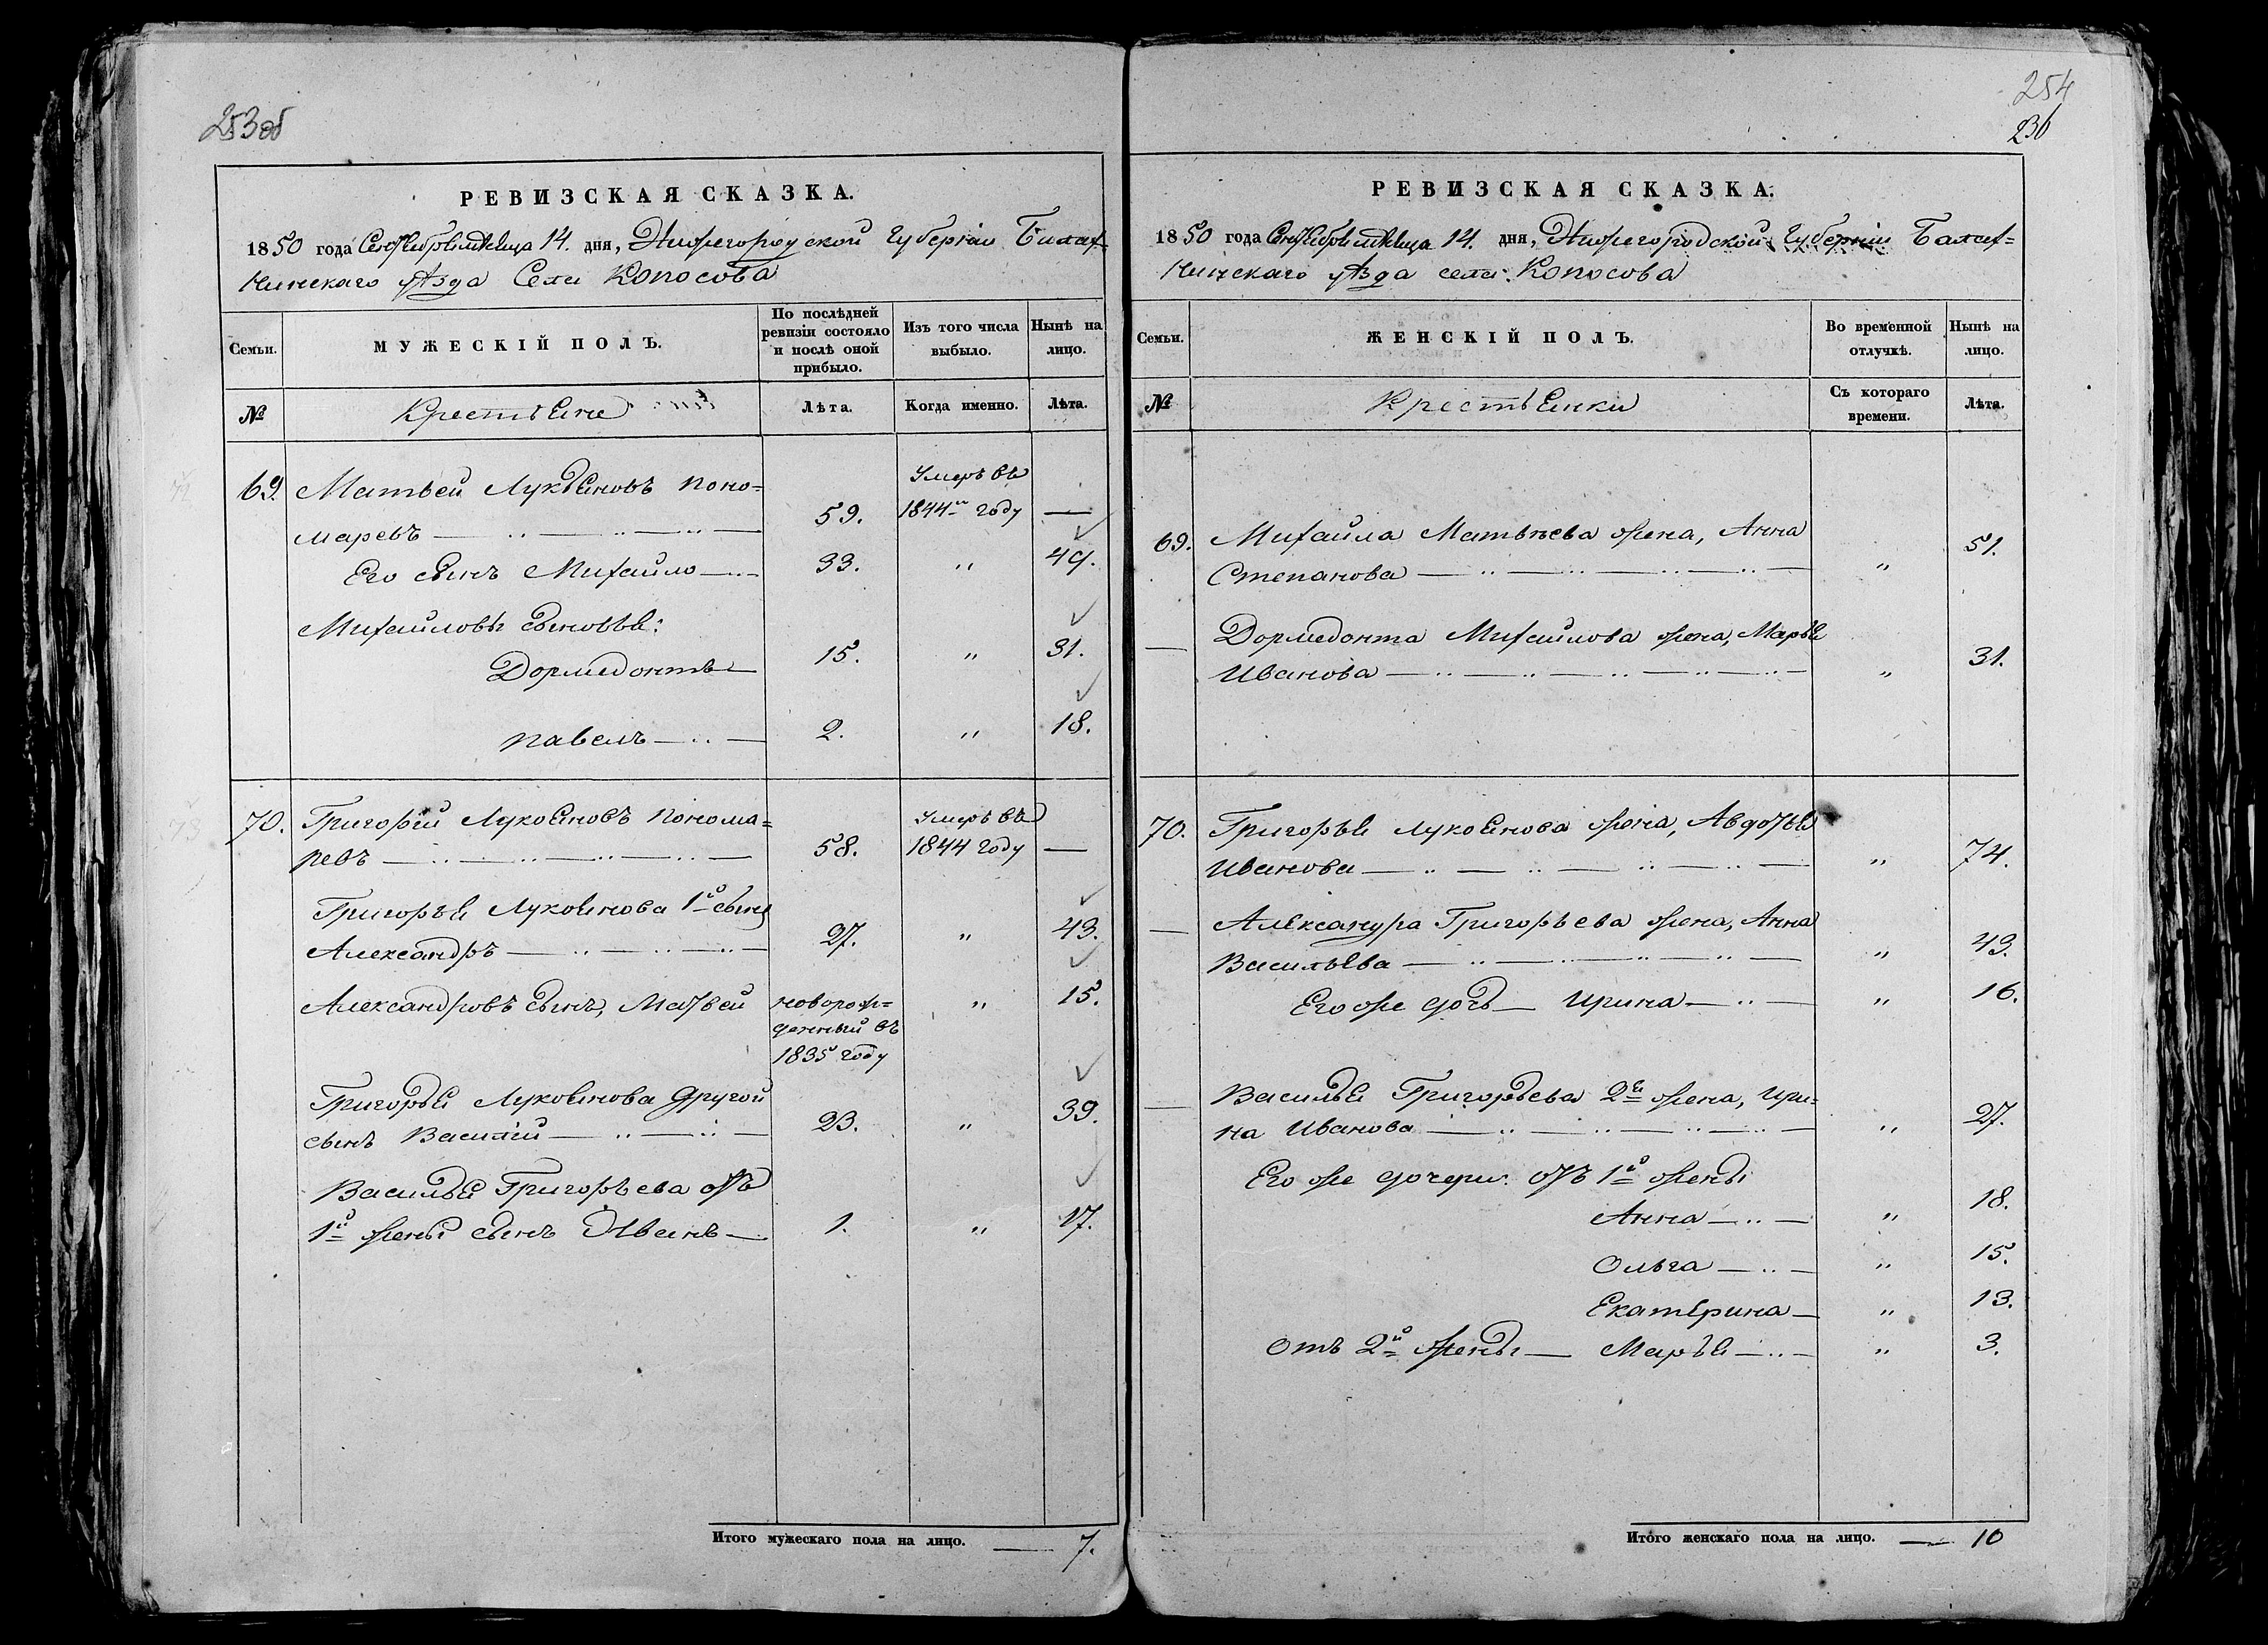 253об
РЕВИЗСКАЯ СКАЗКА.
1850 года Сентебря месеца 14. дня, Нижегородской Губернiи Балах-
нинскаго уѣзда Села Копосова
Семьи.
МУЖЕСКІЙ ПОЛЪ.
По послѣдней
ревизіи состояло
и послѣ оной
прибыло.
Изъ того числа
выбыло.
Нынѣ на
лицо.
№
Крестьяне
Лѣта.
Когда именно.
Лѣта.
69. Матьвей Лукьяновъ Поно=
маревъ 59. Умеръ въ 1844м году —
Его сынъ Михайло 33. „ 49.
Михайловы сыновья:
Дормедонтъ 15. „ 31.
Павелъ 2. „ 18.
70. Григорій Лукояновъ Понома=
ревъ 58. Умеръ въ 1844 году —
Григорья Лукоянова 1й сынъ
Александръ 27. „ 43.
Александровъ сынъ, Матвей новорож=
денный въ
1835 году „ 15.
Григорья Лукоянова другой
сынъ Василій 23. „ 39.
Василья Григорьева отъ
1й жены сынъ Иванъ 1. „ 17.
Итого мужескаго пола на лицо. — 7.
254
236
РЕВИЗСКАЯ СКАЗКА.
1850 года Сентебря месеца 14. дня, Нижегородской Губерніи Балах=
нинскаго уѣзда села Копосова
Семьи.
ЖЕНСКІЙ ПОЛЪ.
Во временной
отлучкѣ.
Нынѣ на
лицо.
№
Крестьянки
Съ котораго
времени.
Лѣта.
69. Михайла Матвѣева жена, Анна
Степанова „ 51.
— Дормедонта Михайлова жена, Марья
Иванова „ 31.
70. Григорья Лукоянова жена, Авдотья
Иванова „ 74.
— Александра Григорьева жена, Анна
Васильева „ 43.
Его же дочь — Ирина „ 16.
— Василья Григорьева 2я жена, Ири=
на Иванова „ 27.
Его же дочери отъ 1й жены
Анна „ 18.
Ольга „ 15.
Екатерина „ 13.
Отъ 2й жены — Марья „ 3.
Итого женскаго пола на лицо. — 10